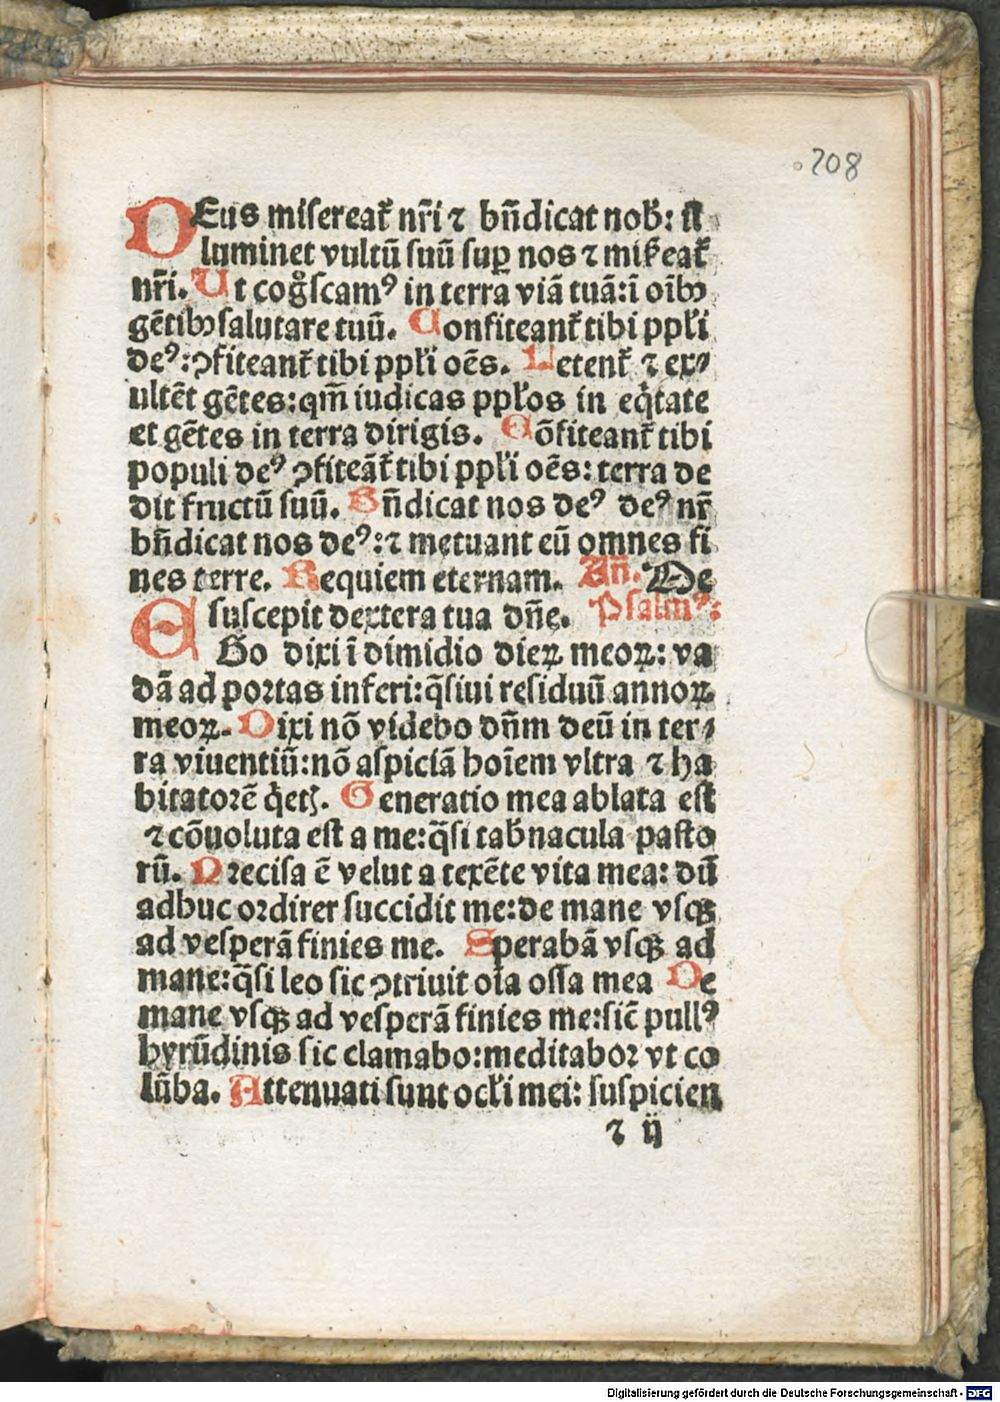 208
DEus misereat᷑ nr̃i ⁊ bñdicat nob̾: il
luminet vultū suū suꝑ nos ⁊ mis̾eat᷑
nr̃i. Ut cogͦscamꝰ in terra viā tuā: ī oībꝫ
gētibꝫ salutare tuū. Confiteant᷑ tibi ppl̾i
deꝰ: ꝯfiteant᷑ tibi ppl̾i oēs. Letent᷑ ⁊ ex⸗
ultēt gētes: qm̄ iudicas ppl̾os in eq̇tate
et gētes in terra dirigis. Cōfiteant᷑ tibi
populi deꝰ ꝯfiteāt᷑ tibi ppl̾i oēs: terra de
dit fructū suū. Bñdicat nos deꝰ deꝰ nr̃
bñdicat nos deꝰ: ⁊ metuant eū omnes fi
nes terre. Requiem eternam. Añ. Me
suscepit dextera tua dñe. Psalmꝰ:
EGo dixi ī dimidio dieꝝ meoꝝ: va
dā ad portas inferi: q̄siui residuū annoꝝ
meoꝝ. Dixi nō videbo dñm deū in ter⸗
ra viuentiū: nō aspiciā hoīem vltra ⁊ ha
bitatorē q̇etꝭ. Generatio mea ablata est
⁊ cōuoluta est a me: q̄si tab̾nacula pasto
rū. Precisa ē velut a texēte vita mea: dū
adhuc ordirer succidit me: de mane vsqꝫ
ad vesperā finies me. Sperabā vsqꝫ ad
mane: q̄si leo sic ꝯtriuit oīa ossa mea De
mane vsqꝫ ad vesperā finies me: sic̄ pullꝰ
hyrūdinis sic clamabo: meditabor vt co
lūba. Attenuati sunt ocl̾i mei: suspicien
⁊ ij
Digitalisierung gefördert durch die Deutsche Forschungsgemeinschaft - DFG